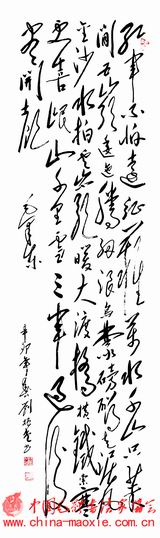 红军不怕远征难万水千山只等
闲五岭逶迤腾细浪乌蒙磅礴走泥丸
金沙水拍云崖暖大渡桥横铁索寒
更喜岷山千里雪三军过后
尽开颜
毛泽东
辛卯年夏刘培
www.china-maoxie.com.cn